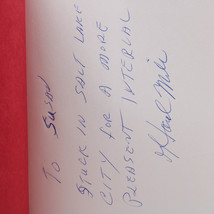 TO SUSAN
STUCK IN SALT LAKE
CITY FOR A MORE
PLENSENT INTERVAL